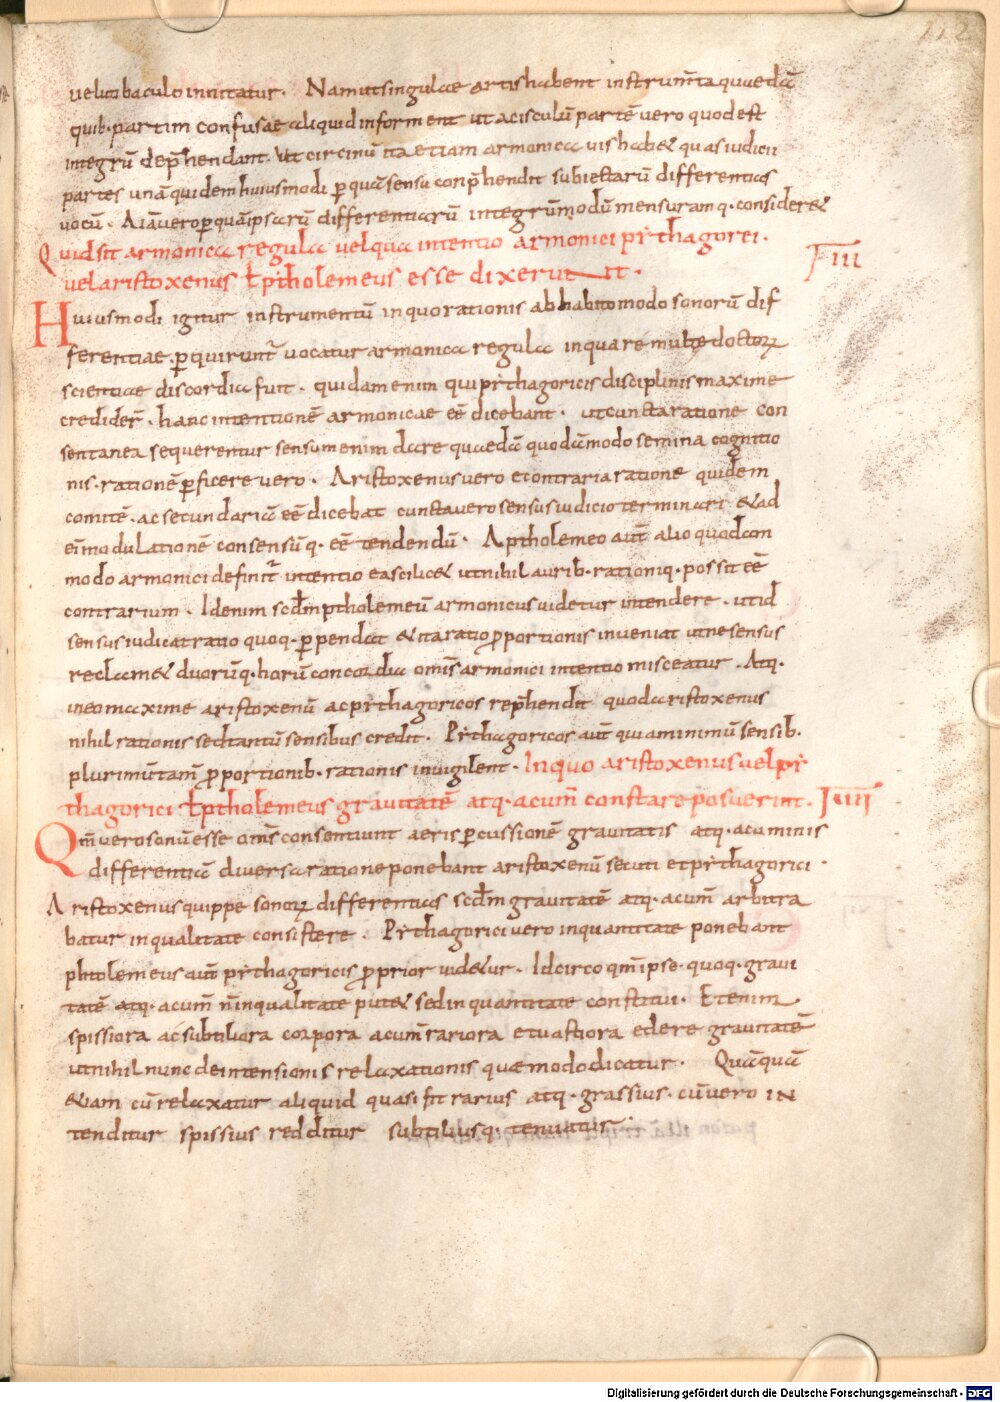 112
uelut baculo innitatur. Nam ut singulae artis habent instrum̄ta quaedā
quib· partim confusae aliquid inform̄ent ut acisculū partē uero quod est
integrū dep̄hendant. Ut circinū ita etiam armonica uis hab& quas iudicii
partes unā quidem huiusmodi p̱ quā sensu conp̄hendit subiectarū differentias
uocū. Aliā uero p̱ quā ipsarū differentiarū integrū modū mensuramq· consider&
Quid sit armonica regula uel qua intentio armonici pythagorei.
uel aristoxenus ł ptholemeus esse dixerunt.
F III
Huiusmodi igitur instrumentū in quo rationis ab habito modo sonorū dif
ferentiae p̱quirunt̄ uocatur armonica regula in qua re multe doctoꝝ
scientiae discordia fuit. quidam enim qui pythagoricis disciplinis maxime
credider̄. hanc intentionē armonicae eē dicebant. ut cuncta ratione con
sentanea sequerentur sensum enim dare quaedā quodāmodo semina cognitio
nis. rationē p̱ficere uero. Aristoxenus uero e contraria ratione quidem
comitē. ac secundariā eē dicebat cuncta uero sensus iudicio terminari & ad
ei modulationē consensūq· eē tendendū. A ptholemeo aut̄ alio quodcom
modo armonici definit̄ intentio ea scilic& ut nihil aurib· rationiq· possit eē
contrarium. Id enim scđm ptholemeū armonicus uidetur intendere. ut id
sensus iudicat ratio quoq· p̱pendat & ita ratio p̱portionis inueniat ut ne sensus
reclam& duorūq· horū concordia om̄is armonici intentio misceatur. Atq·
in eo maxime aristoxenū ac pythagoricos rep̄hendit quod aristoxenus
nihil rationis sed tantū sensibus credit. Pythagoricos aut̄ quia minimū sensib·
plurimū tam̄ p̱portionib· rationis inuigilent. In quo aristoxenus uel py
thagorici ł ptholemeus grauitatē atq· acum̄ constare posuerint. IIII
Qm̄ uero sonū esse om̄s consentiunt aeris p̱cussionē grauitatis atq· acuminis
differentiā diuersa ratione ponebant aristoxenū secuti et pythagorici.
Aristoxenus quippe sonoꝝ differentias scđm grauitatē atq· acum̄ arbitra
batur in qualitate consistere. Pythagorici uero in quantitate ponebant
phtolemeus aut̄ pythagoricis p̱prior uid&ur. Idcirco qm̄ ipse quoq· graui
tatē atq· acum̄ n̄ in qualitate put& sed in quantitate constitui. Etenim
spissiora ac subtiliora corpora acum̄ rariora et uastiora edere grauitatē
ut nihil nunc de intensionis relaxationis quae modo dicatur. Quāquā
&iam cū relaxatur aliquid quasi fit rarius atq· grassius. cū uero in
tenditur spissius redditur subtiliusq· tenuatur.
Digitalisierung gefördert durch die Deutsche Forschungsgemeinschaft - DFG